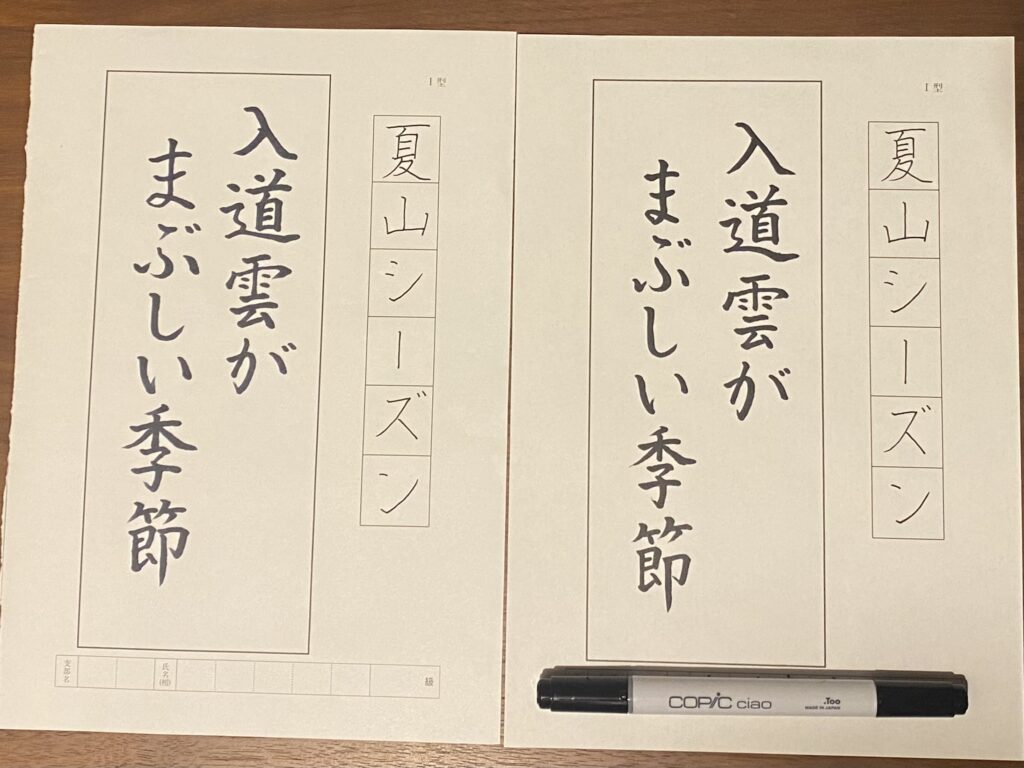 I型
夏山シーズン
入道雲が
まぶしい季節
支部名
氏名(号)
級
I型
夏山シーズン
入道雲が
まぶしい季節
COPiC ciao
.Too
MADE IN JAPAN